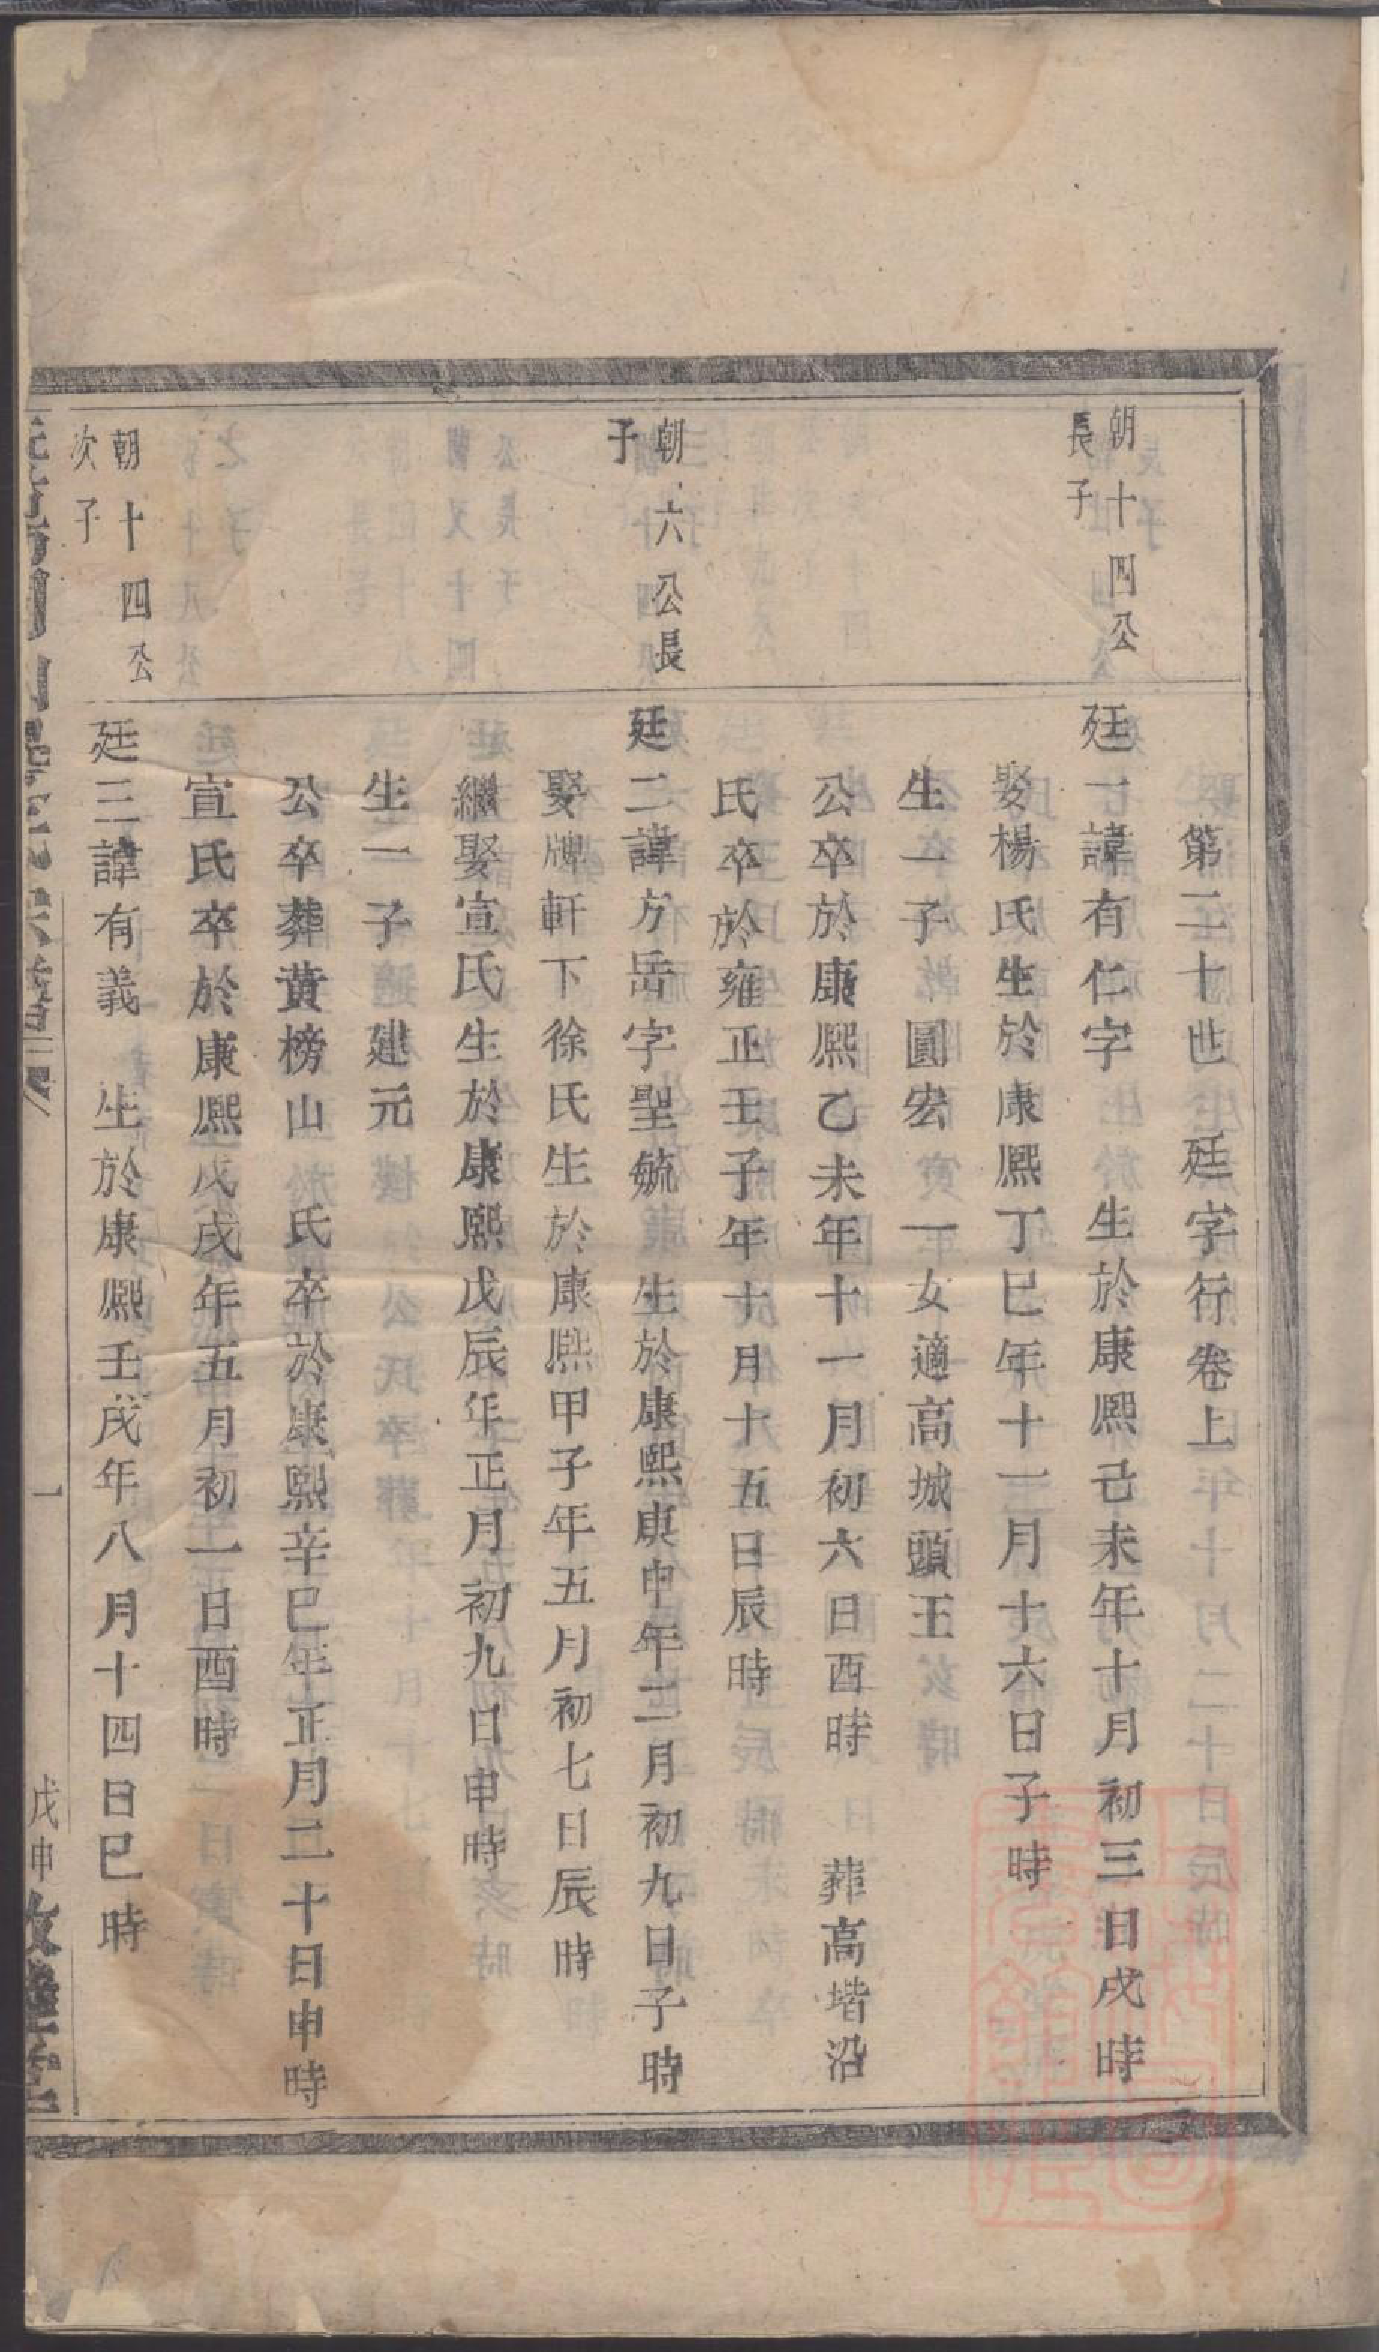 第二十世　廷字行卷上
朝十四公
長子
廷一諱有仁字　　生於康熙己未年十月初三日戌時
娶楊氏生於康熙丁巳年十一月十六日子時
生一子　圓宏　一女適高城頭王
公卒於康熙乙未年十一月初六日酉時　葬高堦沿
氏卒於雍正壬子年十月十五日辰時
朝六公長
子
廷二諱方岳字聖毓　生於康熙庚申年二月初九日子時
娶牌軒下徐氏生於康熙甲子年五月初七日辰時
繼娶宣氏生於康熙戊辰年正月初九日申時
生一子建元
公卒葬黃榜山　氏卒於康熙辛巳年正月二十日申時
宣氏卒於康熙戊戌年五月初一日酉時
朝十四公
次子
廷三諱有義　生於康熙壬戌年八月十四日巳時
一
戊申